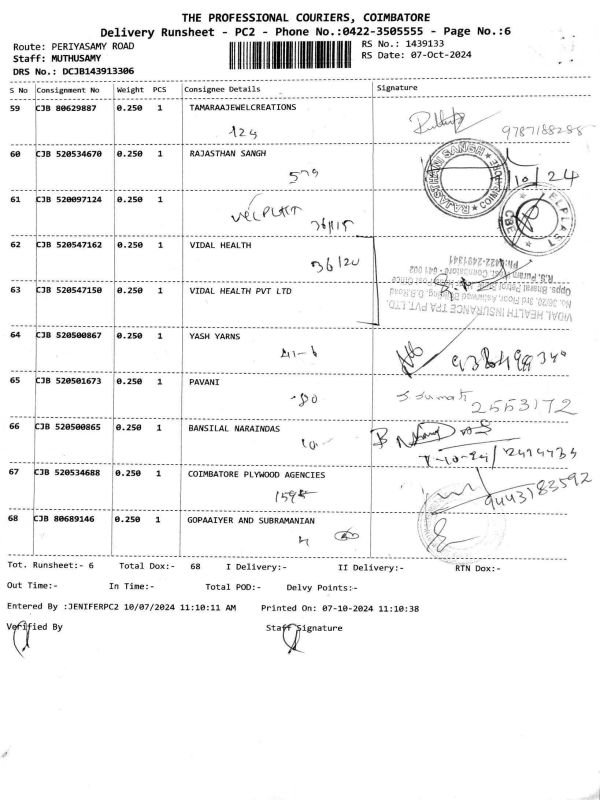 THE PROFESSIONAL COURIERS, COIMBATORE
Delivery Runsheet - PC2 - Phone No.:0422-3505555 - Page No.:6
Route: PERIYASAMY ROAD
RS No.: 1439133
Staff: MUTHUSAMY
RS Date: 07-Oct-2024
DRS No.: DCJB143913306
S No Consignment No Weight PCS Consignee Details Signature
59 CJB 80629887 0.250 1 TAMARAAJEWELCREATIONS
124 9787188288
60 CJB 520534670 0.250 1 RAJASTHAN SANGH
579 10/24
RAJASTHAN SANGH COIMBATORE
61 CJB 520097124 0.250 1
VELPLAST 36/15
ELPLAST
CBE
62 CJB 520547162 0.250 1 VIDAL HEALTH
36/20
63 CJB 520547150 0.250 1 VIDAL HEALTH PVT LTD
VIDAL HEALTH INSURANCE TPA PVT. LTD.
No. 36/20, 3rd Floor, Ashirwad Building, D.B.Road
Opps. Bharat Petrol Bunk, Head Post Office
R.S. Puram West, Coimbatore - 641 002
Ph:0422-2491341
64 CJB 520500867 0.250 1 YASH YARNS
41-6
65 CJB 520501673 0.250 1 PAVANI
80 S. Sumati 2553172
66 CJB 520500865 0.250 1 BANSILAL NARAINDAS
10 7-10-24/
67 CJB 520534688 0.250 1 COIMBATORE PLYWOOD AGENCIES
9443183592
68 CJB 80689146 0.250 1 GOPAAIYER AND SUBRAMANIAN
Tot. Runsheet:- 6 Total Dox:- 68 I Delivery:- II Delivery:- RTN Dox:-
Out Time:- In Time:- Total POD:- Delvy Points:-
Entered By :JENIFERPC2 10/07/2024 11:10:11 AM Printed On: 07-10-2024 11:10:38
Verified By Staff Signature